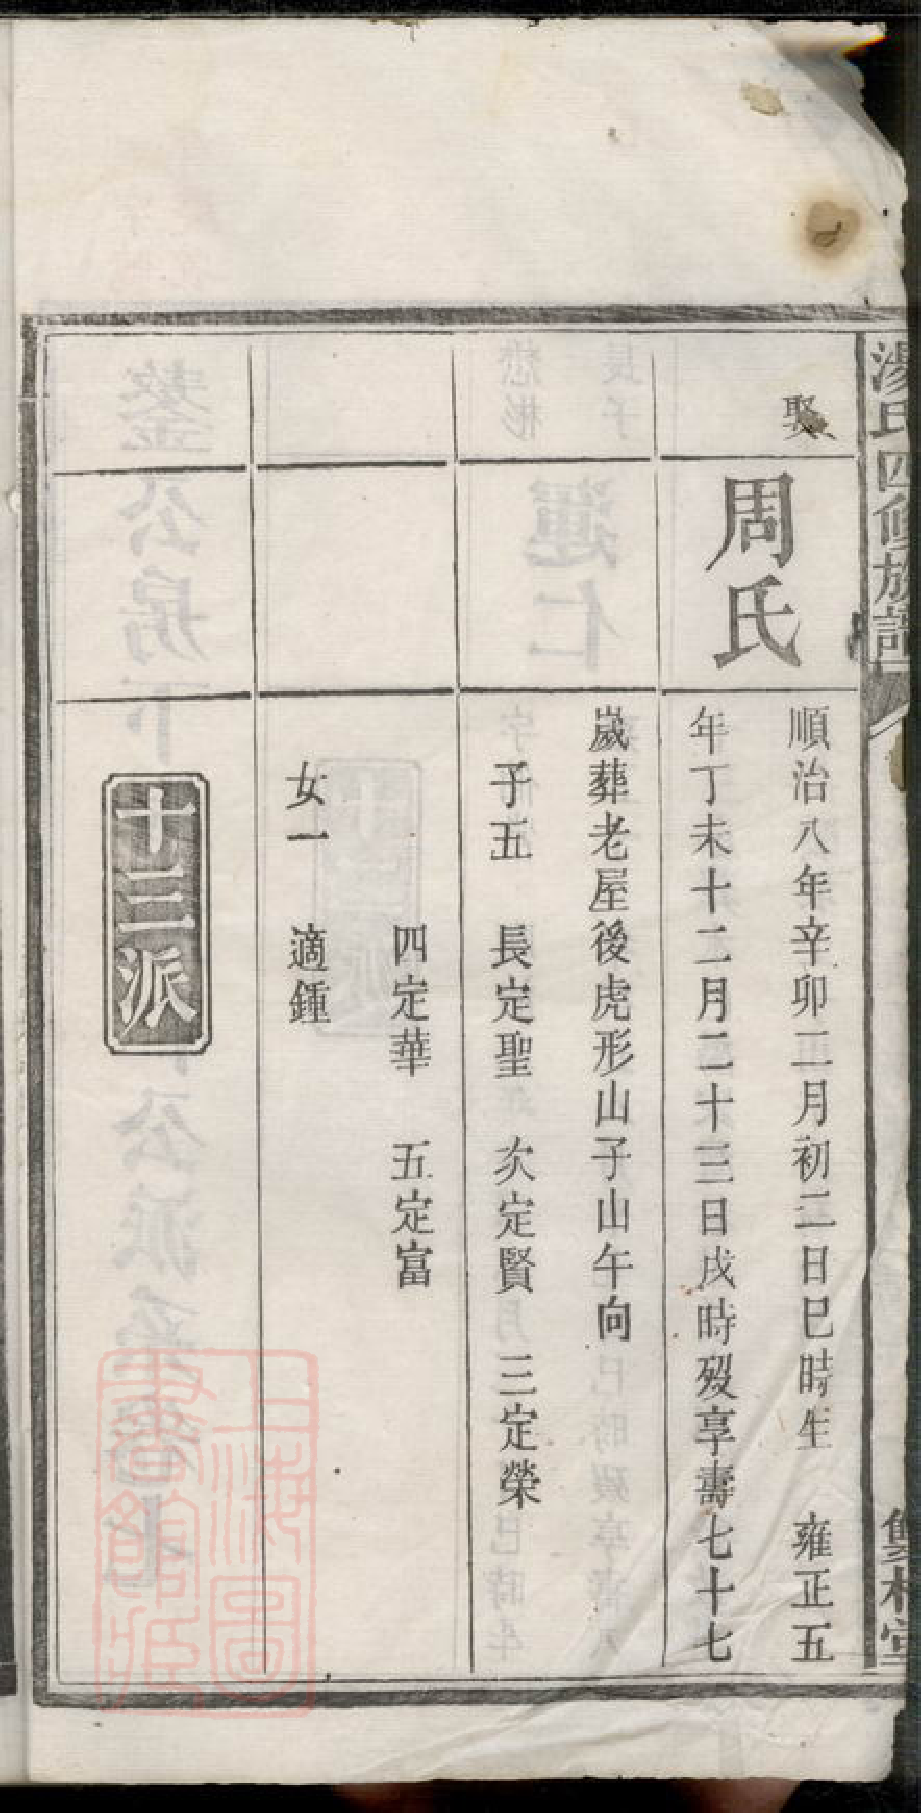 湯氏四修族譜
雙柏堂
娶
周氏
順治八年辛卯二月初二日巳時生 雍正五
年丁未十二月二十三日戌時歿享壽七十七
歲葬老屋後虎形山子山午向
子五 長定聖 次定賢 三定榮
四定華 五定富
女一 適鍾
十三派
上海圖
書館藏